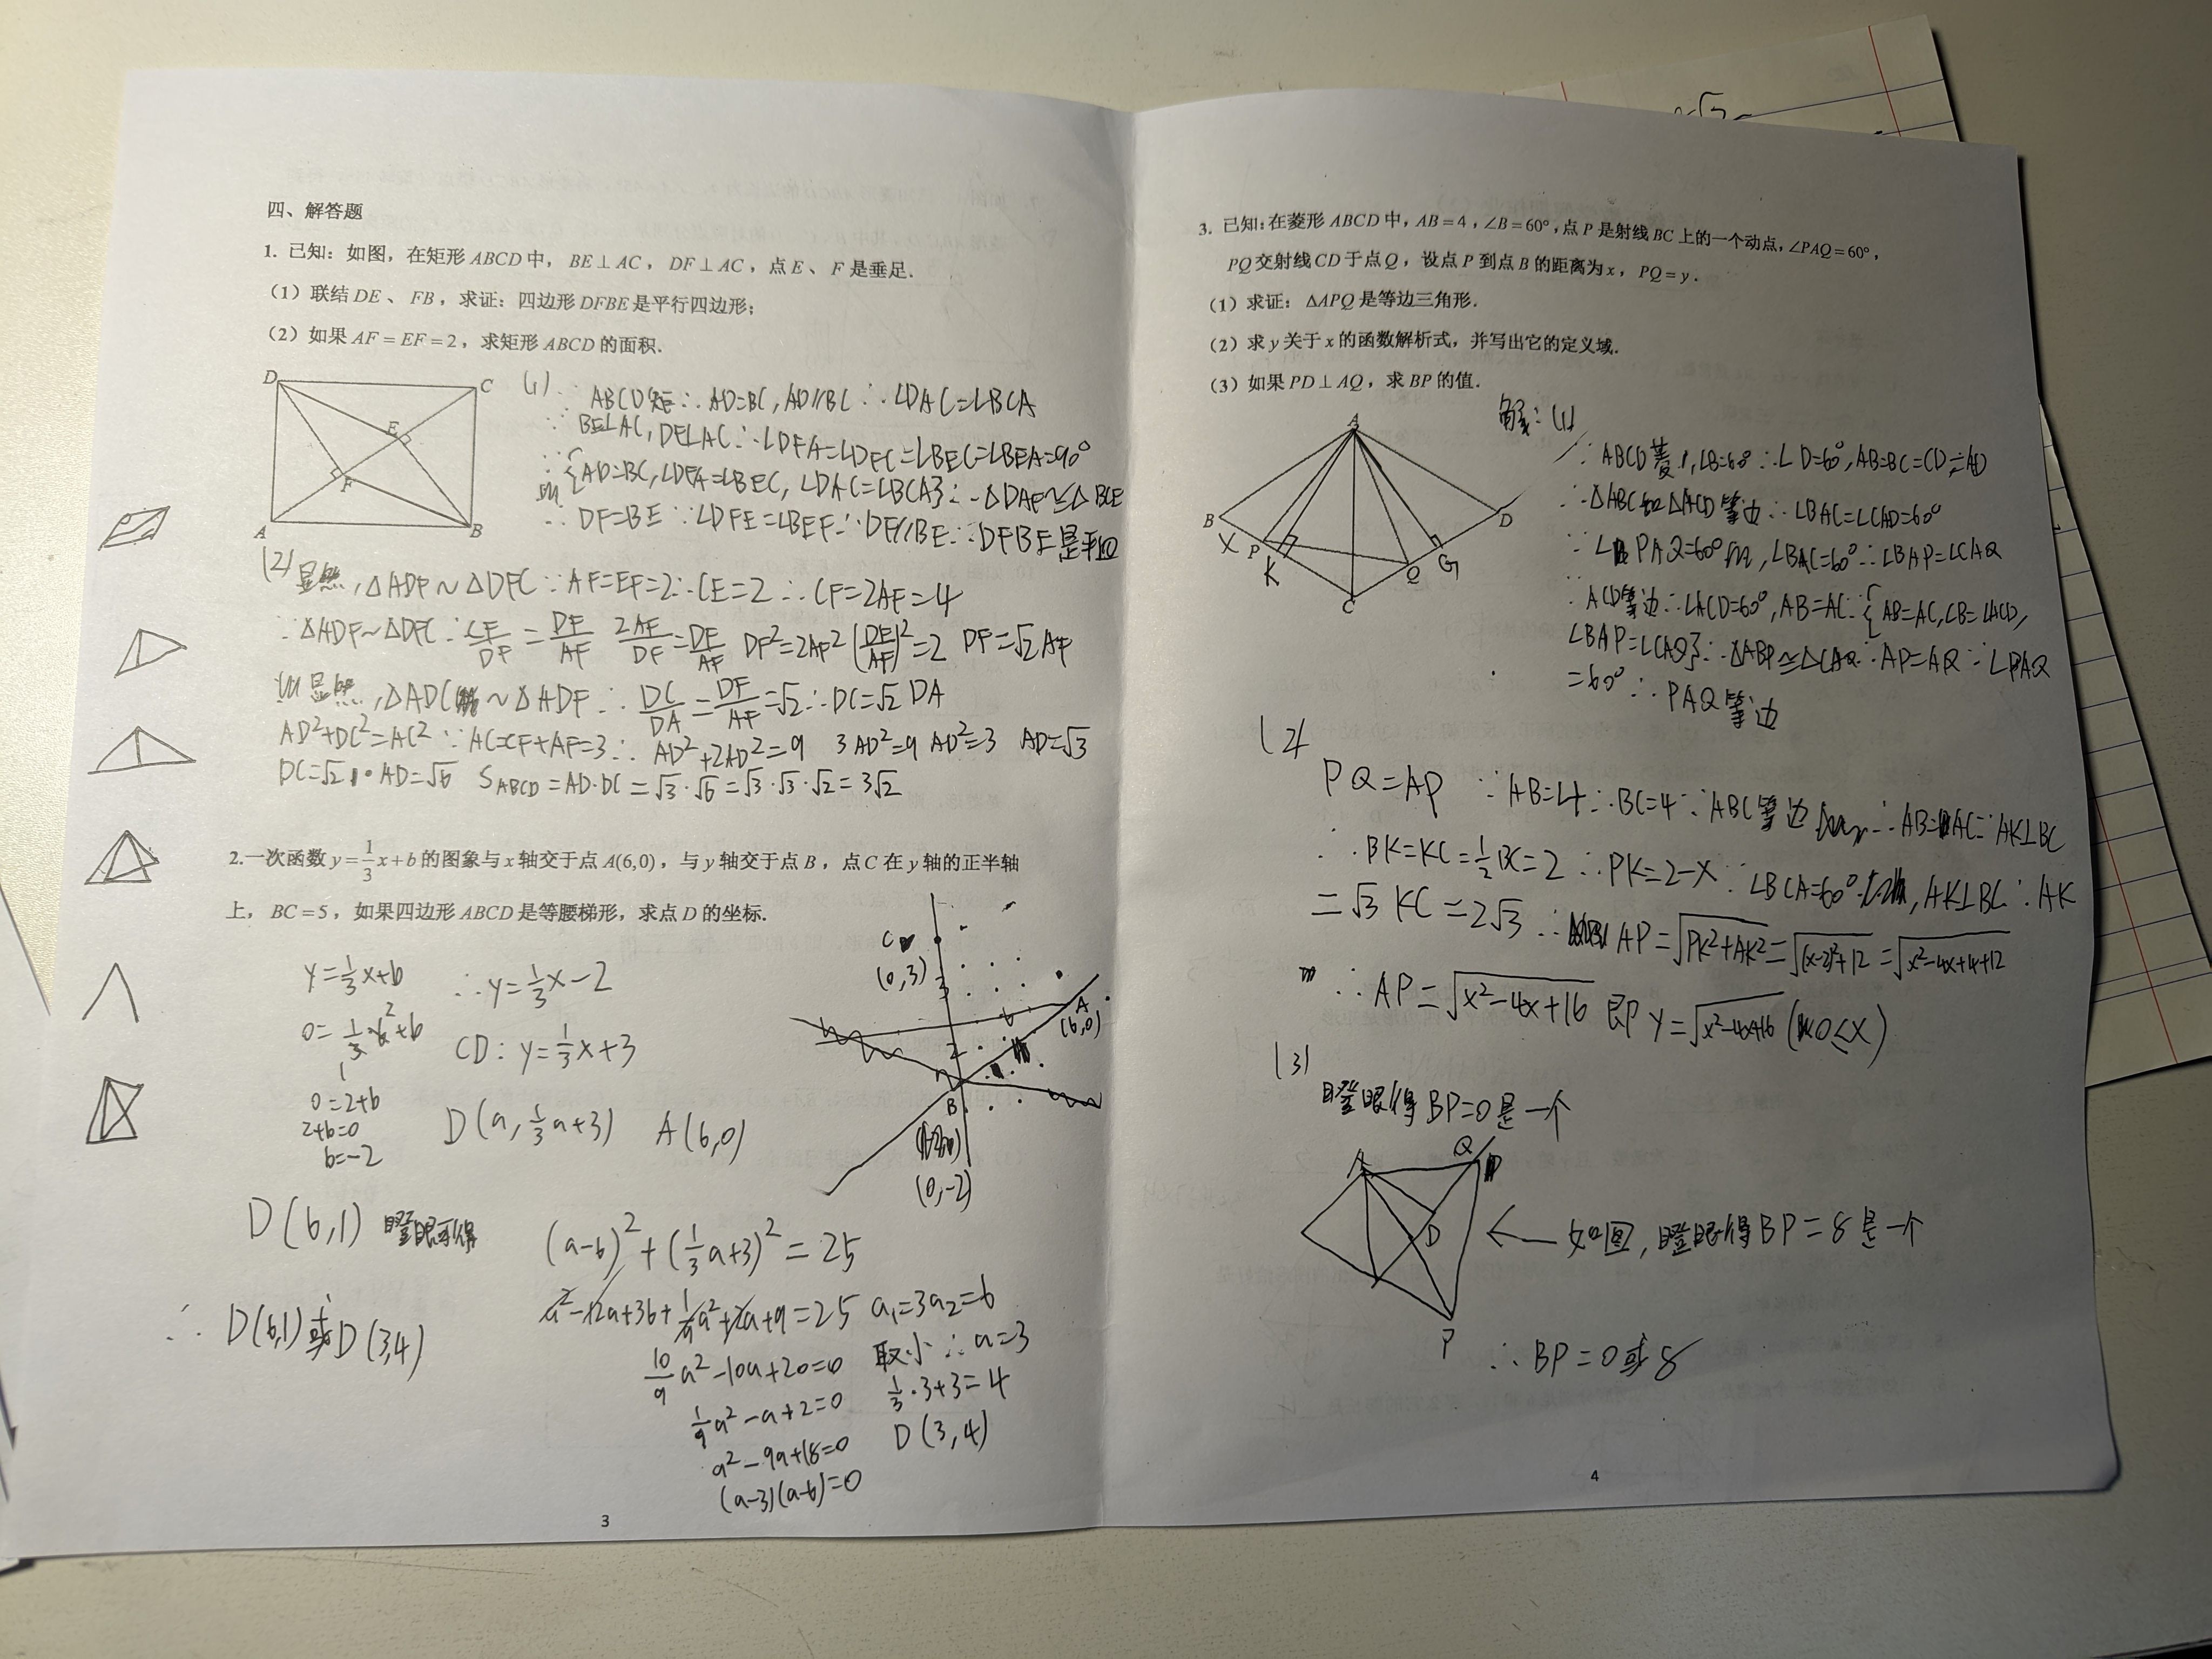 四、解答题
1. 已知：如图，在矩形ABCD中，BE⊥AC，DF⊥AC，点E、F是垂足.
（1）联结DE、FB，求证：四边形DFBE是平行四边形；
（2）如果AF=EF=2，求矩形ABCD的面积.
D
C
E
F
A
B
(1) ∵ABCD矩∴AD=BC, AD//BC∴∠DAC=∠BCA
∵BE⊥AC, DF⊥AC∴∠DFA=∠DFC=∠BEC=∠BEA=90°
∵{AD=BC, ∠DFA=∠BEC, ∠DAC=∠BCA}∴△DAF≌△BCE
∴DF=BE∵∠DFE=∠BEF∴DF//BE∴DFBE是平四
(2) 显然, △ADF~△DFC∵AF=EF=2∴CE=2∴CF=2AF=4
∵△ADF~△DFC∴CF/DF=DF/AF 2AF/DF=DF/AF DF²=2AF² (DF/AF)²=2 DF=√2AF
显然, △ADC~△ADF∴DC/DA=DF/AF=√2∴DC=√2DA
AD²+DC²=AC²∵AC=CF+AF=3∴AD²+2AD²=9 3AD²=9 AD²=3 AD=√3
DC=√2·AD=√6 S_ABCD=AD·DC=√3·√6=√3·√3·√2=3√2
2.一次函数y=1/3x+b的图象与x轴交于点A(6,0)，与y轴交于点B，点C在y轴的正半轴
上，BC=5，如果四边形ABCD是等腰梯形，求点D的坐标.
y=1/3x+b ∴y=1/3x-2
0=1/3·6+b CD: y=1/3x+3
0=2+b
2+b=0
b=-2
D(a, 1/3a+3) A(6,0)
C
(0,3)
A
(6,0)
B
(0,-2)
D(6,1) 瞪眼可得
(a-6)²+(1/3a+3)²=25
a²-12a+36+1/9a²+2a+9=25 a₁=3 a₂=6
10/9a²-10a+20=0 取小∴a=3
1/9a²-a+2=0 1/3·3+3=4
a²-9a+18=0 D(3,4)
(a-3)(a-6)=0
∴D(6,1)或D(3,4)
3
3. 已知：在菱形ABCD中，AB=4，∠B=60°，点P是射线BC上的一个动点，∠PAQ=60°，
PQ交射线CD于点Q，设点P到点B的距离为x，PQ=y.
（1）求证：△APQ是等边三角形.
（2）求y关于x的函数解析式，并写出它的定义域.
（3）如果PD⊥AQ，求BP的值.
A
B
D
X
P
K
Q
G
C
解：(1)
∵ABCD菱, ∠B=60°∴∠D=60°, AB=BC=CD=AD
∴△ABC和△ACD等边∴∠BAC=∠CAD=60°
∵∠PAQ=60°, ∠BAC=60°∴∠BAP=∠CAQ
∵ACD等边∴∠ACD=60°, AB=AC∵{AB=AC, ∠B=∠ACD,
∠BAP=∠CAQ}∴△ABP≌△CAQ∴AP=AQ∵∠PAQ
=60°∴PAQ等边
(2)
PQ=AP ∵AB=4∴BC=4∵ABC等边∴AB=AC∵AK⊥BC
∴BK=KC=1/2BC=2∴PK=2-x∵∠BCA=60°, AK⊥BC∴AK
=√3KC=2√3∴AP=√(PK²+AK²)=√((x-2)²+12)=√(x²-4x+4+12)
∴AP=√(x²-4x+16) 即y=√(x²-4x+16) (0≤x)
(3)
瞪眼得BP=0是一个
A
Q
D
P
← 如图, 瞪眼得BP=8是一个
∴BP=0或8
4